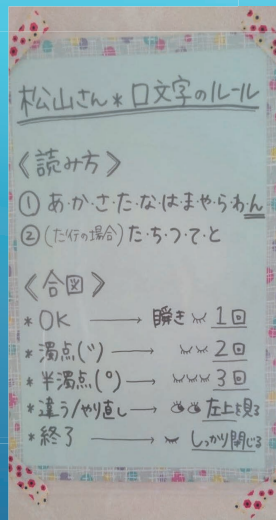 松山さん*口文字のルール
《読み方》
① あ・か・さ・た・な・は・ま・や・ら・わ・ん
② (た行の場合)た・ち・つ・て・と
《合図》
*OK → 瞬き 1回
*濁点(゛) → 2回
*半濁点(°) → 3回
*違う/やり直し → 左上を見る
*終了 → しっかり閉じる